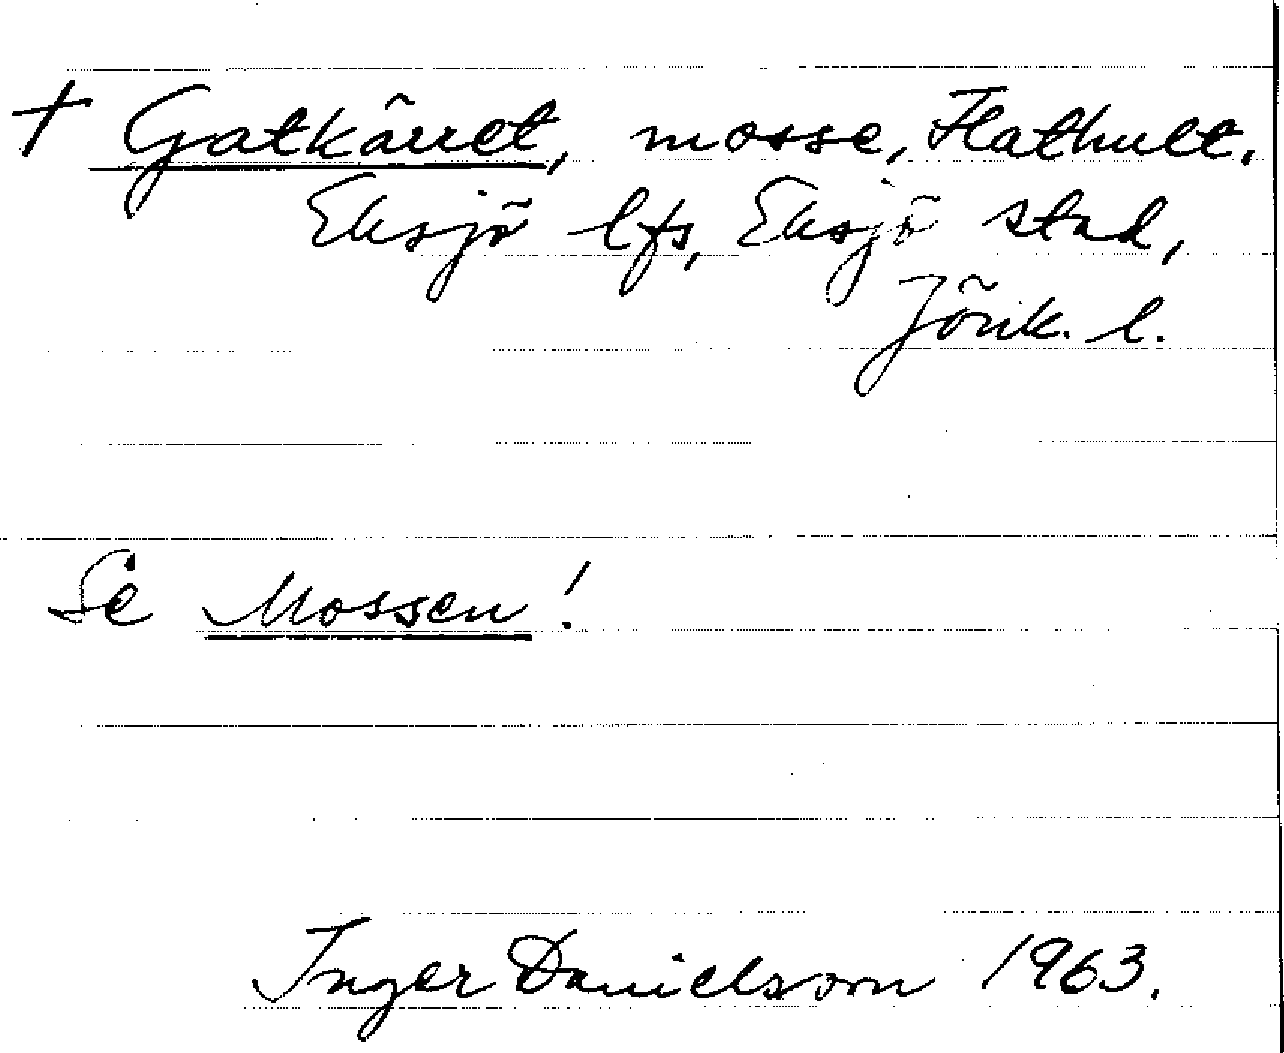 † Gatkärret, mosse, Flathult.
Eksjö lfs, Eksjö stad,
Jönk. l.
Se Mossen!
Inger Danielsson 1963.